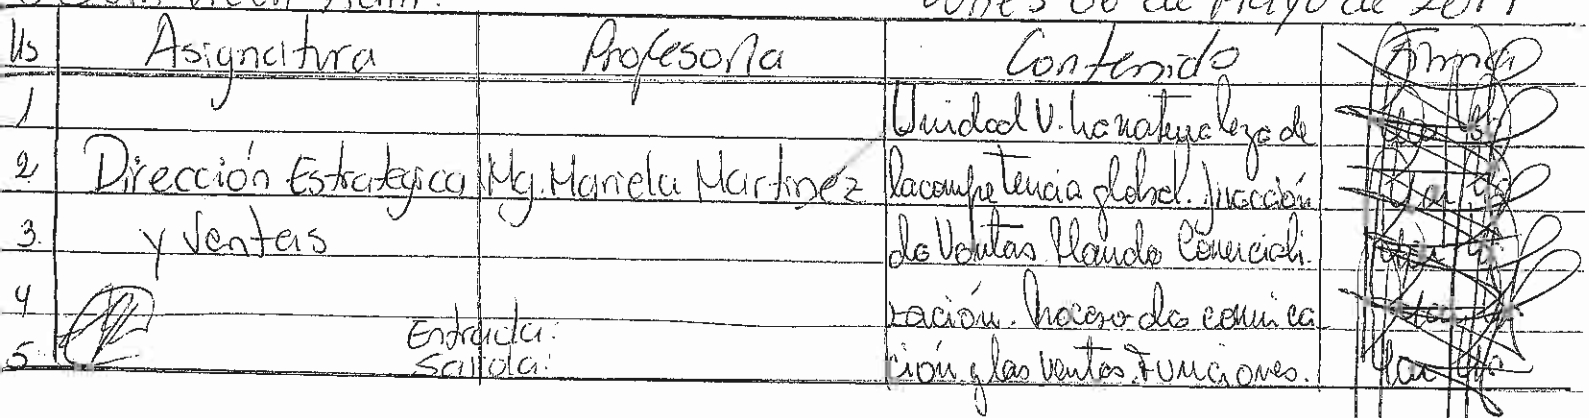 de Mayo de 2019
Hs Asignatura Profesor/a Contenido Firma
1 Unidad V. La naturaleza de
2 Dirección Estrategica Mg. Mariela Martinez la competencia global. Dirección
3. y Ventas de Ventas Plan de Comerciali.
4 zación. Proceso de comunica
Entrada:
5 Salida: ción y las ventas. Funciones.